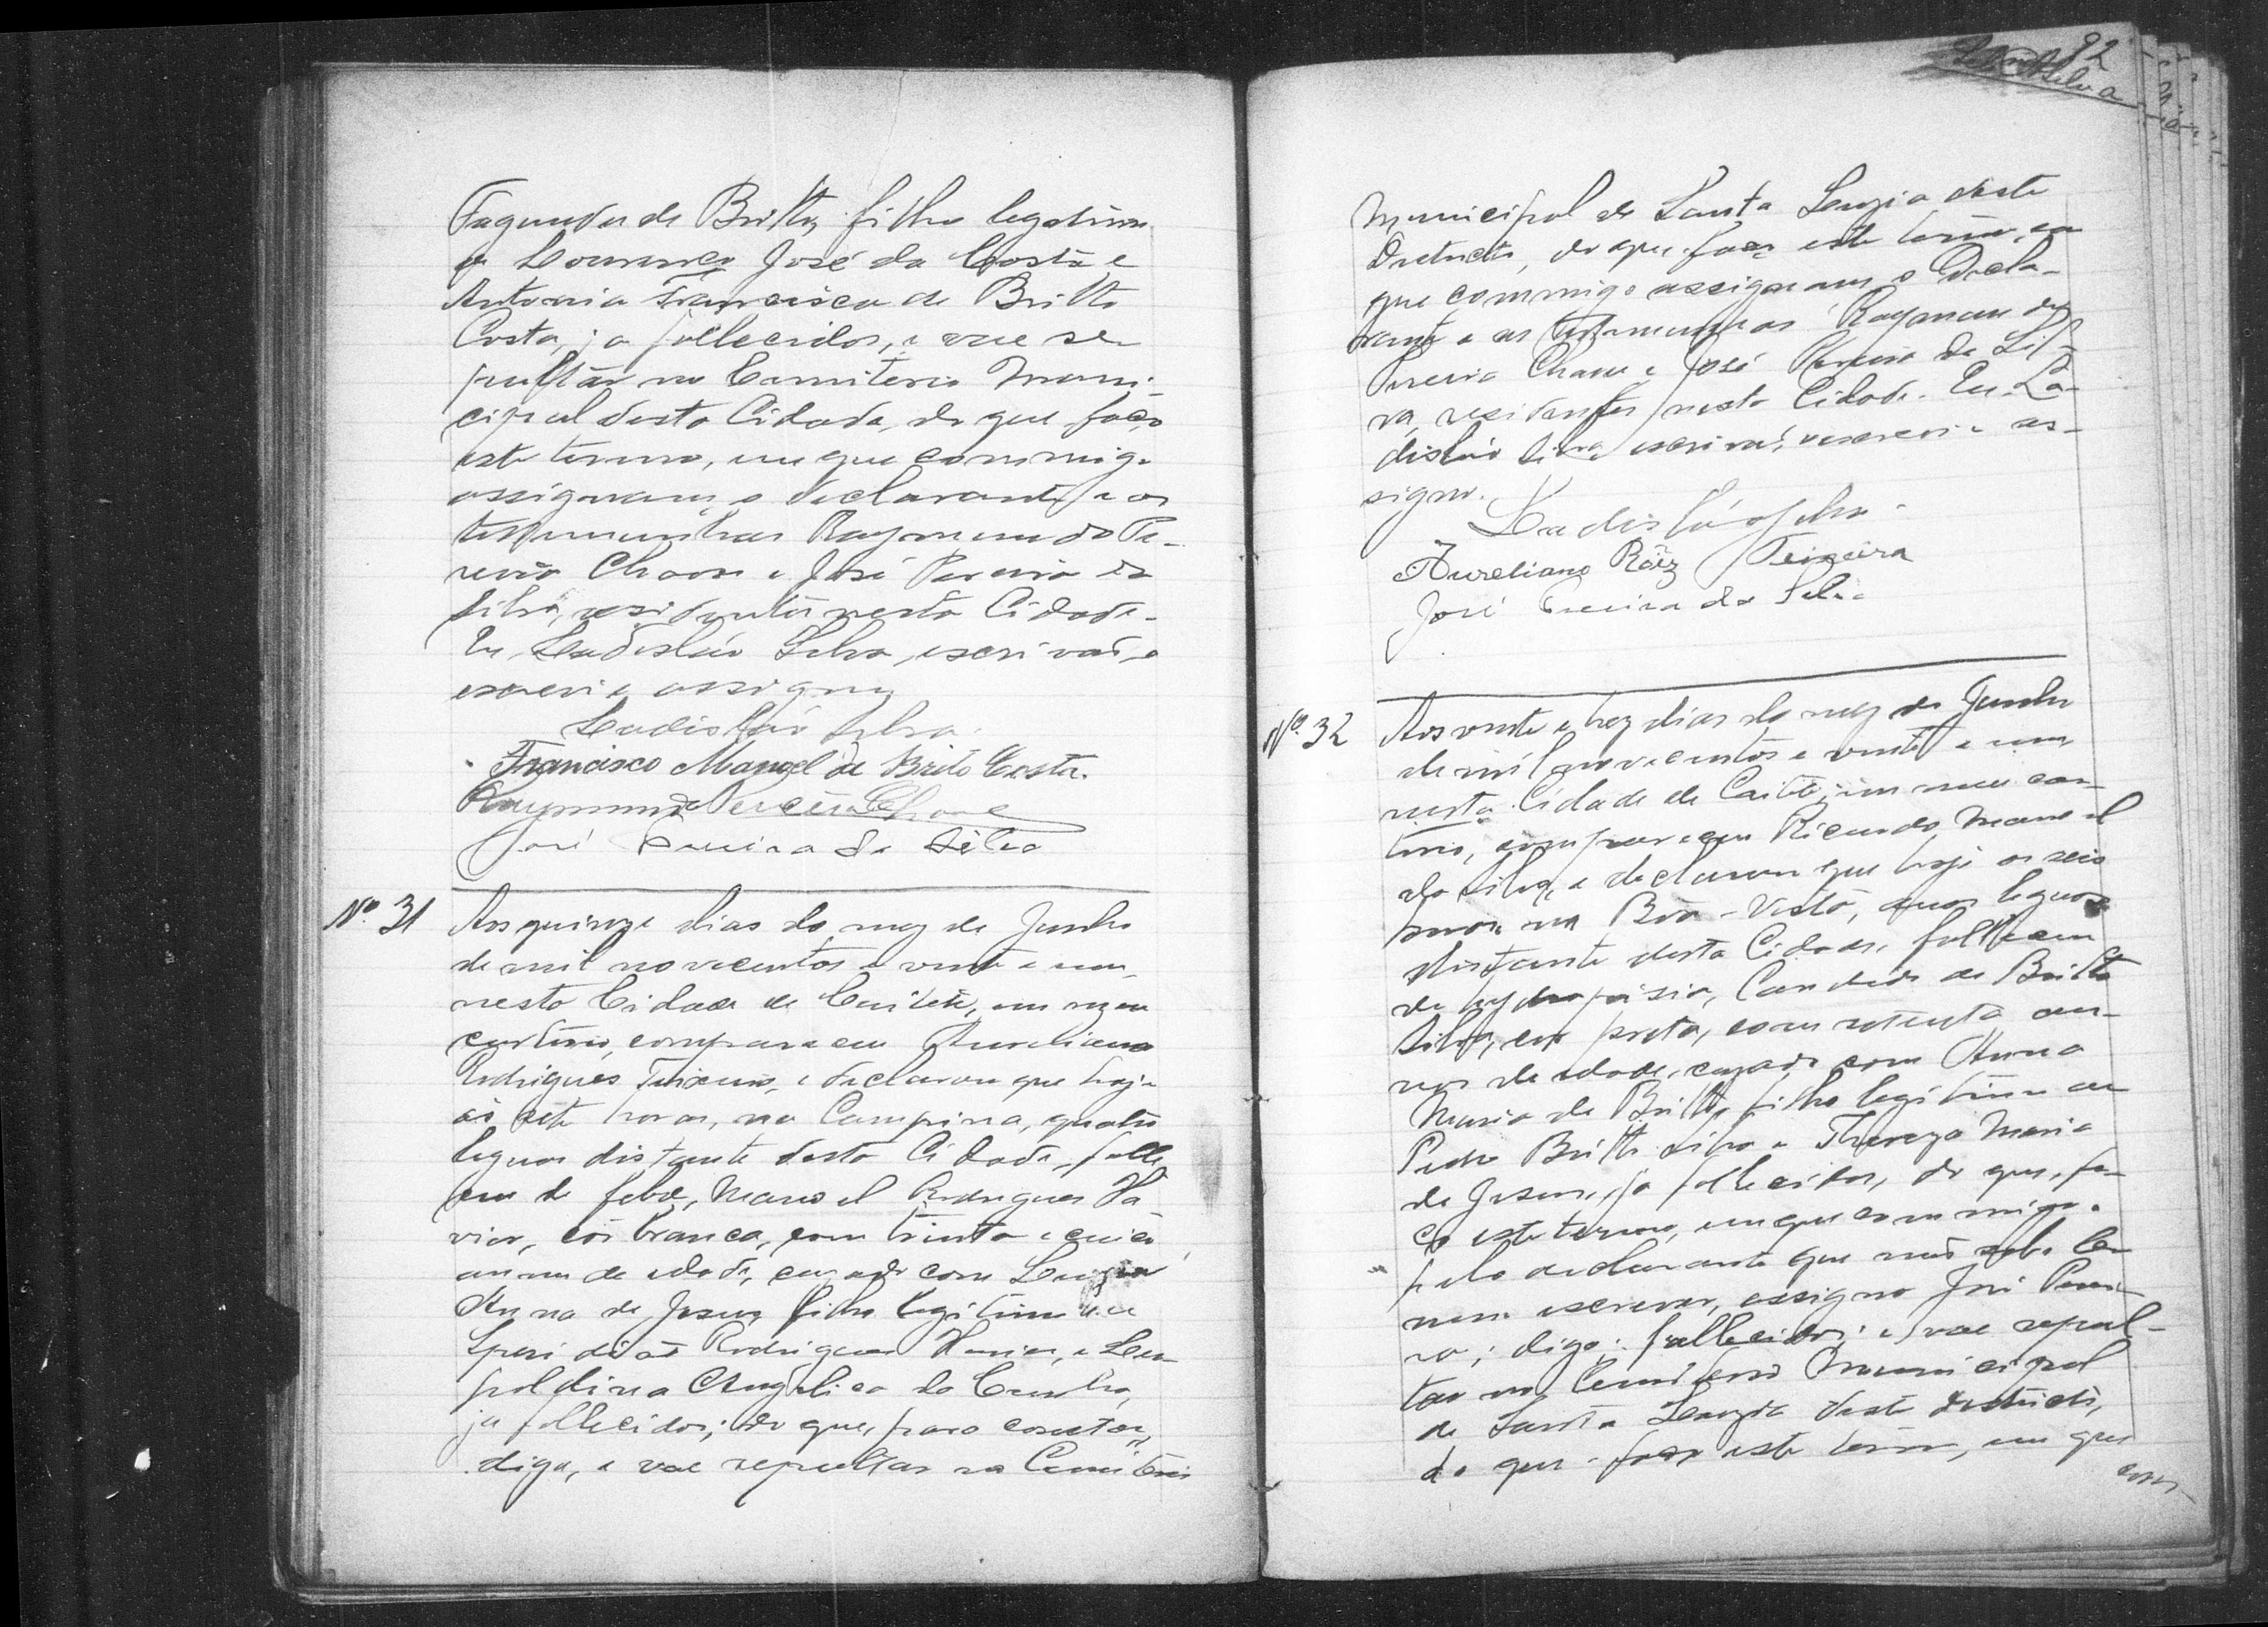 Fagundes de Britto, filho legitimo
de Lourenço José da Costa e
Antonia Francisca de Britto
Costa, ja fallecidos, e vae se
pultar no Cemiterio Muni-
cipal desta Cidade, do que faço
este termo, em que commigo
assignam, o declarante e as
testemunhas Raymundo Pe-
reira Chaves e José Pereira da
Silva, residentes nesta Cidade.
Eu, Ladisláo Silva, escrivão, o
escrevi e assigno
Ladisláo Silva.
Francisco Manoel de Brito Costa.
Raymundo Pereira Chaves
José Pereira da Silva
Nº 31 Aos quinze dias do mez de Junho
de mil novecentos e vinte e um
nesta Cidade de Caiteté, em meu
cartorio, compareceu Aureliano
Rodrigues Teixeira, e declarou que hoje
as sete horas, na Campina, quatro
leguas distante desta Cidade, falle
ceu de febre, Manoel Rodrigues Xa
vier, côr branca, com trinta e cinco
annos de edade, cazado com Luzia
Anna de Jesus, filho legitimo de
Speridião Rodrigues Xavier, e Leo
poldina Angelica da Cunha,
ja fallecidos; do que, para constar,
digo, e vae sepultar no Cemiterio
92
Silva
Municipal de Santa Luzia deste
Districto, do que faço este termo, em
que commigo assignam o Decla-
rante e as testemunhas Raymundo
Pereira Chaves e José Pereira da Sil-
va, residentes nesta Cidade. Eu La-
disláo Silva, escrivão, o escrevi e as-
signo.
Ladisláo Silva.
Aureliano Roiz Teixeira
José Pereira da Silva
Nº 32 Aos vinte e trez dias do mez de Junho
de mil novecentos e vinte e um
nesta Cidade de Caiteté, em meu car-
torio, compareceu Ricardo Manoel
da Silva, e declarou que hoje as seis
horas na Boa-Vista, duas leguas
distante desta Cidade, falleceu
de hydropisia, Candido de Britto
Silva, cor preta, com setenta an-
nos de edade, cazado com Anna
Maria de Britto, filho legitimo de
Pedro Britto Silva e Thereza Maria
de Jesus, ja fallecidos, do que, fa-
ço este termo, em que commigo.
pelo declarante que não sabe ler
nem escrever, assigno José Perei-
ra; digo: fallecidos; e vae sepul-
tar no Cemiterio Municipal
de Santa Luzia deste districto,
do que faço este termo, em que
com-